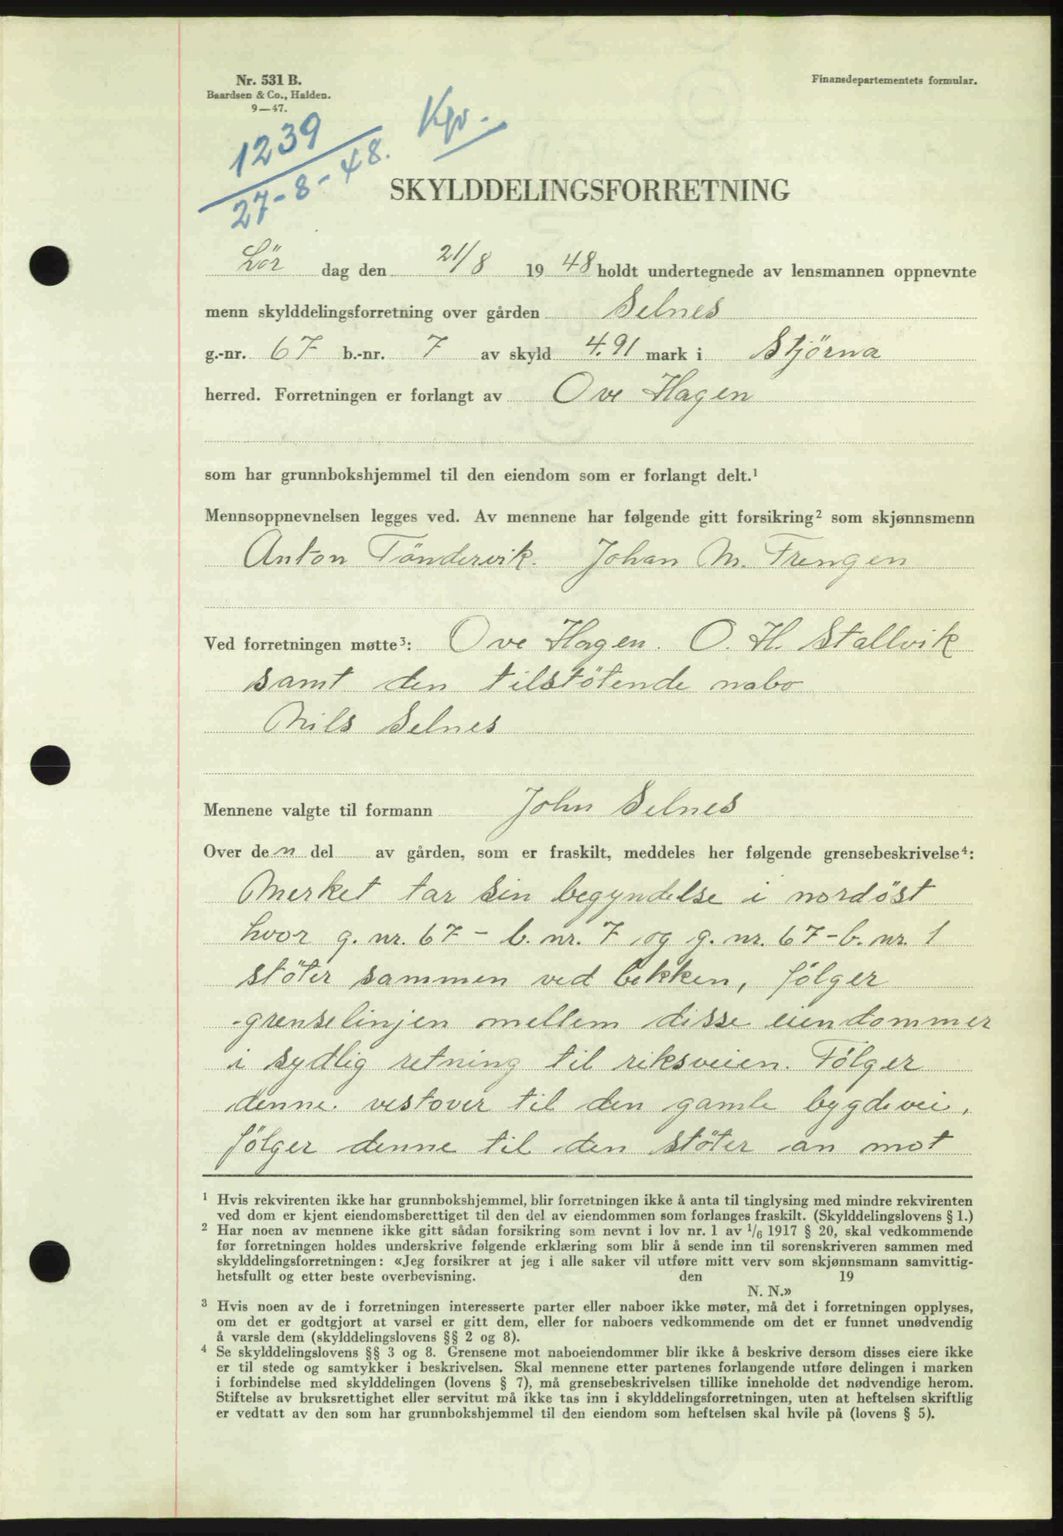 Nr. 531 B.
Baardsen & Co., Halden.
9—47.
Finansdepartementets formular.
1239
27-8-48.
Kjv.
SKYLDDELINGSFORRETNING
Lör dag den 21/8 1948 holdt undertegnede av lensmannen oppnevnte
menn skylddelingsforretning over gården Selnes
g.-nr. 67 b.-nr. 7 av skyld 4.91 mark i Stjörna
herred. Forretningen er forlangt av Ove Hagen
som har grunnbokshjemmel til den eiendom som er forlangt delt.¹
Mennsoppnevnelsen legges ved. Av mennene har følgende gitt forsikring² som skjønnsmenn
Anton Töndervik. Johan M. Frengen
Ved forretningen møtte³: Ove Hagen. O. H. Stallvik
samt den tilstötende nabo
Nils Selnes
Mennene valgte til formann John Selnes
Over den del av gården, som er fraskilt, meddeles her følgende grensebeskrivelse⁴:
Merket tar sin begyndelse i nordöst
hvor g. nr. 67 - b. nr. 7 og g. nr. 67 - b. nr. 1
stöter sammen ved bekken, fölger
grenselinjen mellem disse eiendommer
i sydlig retning til riksveien. Fölger
denne vestover til den gamle bygdevei,
fölger denne til den stöter an mot
¹ Hvis rekvirenten ikke har grunnbokshjemmel, blir forretningen ikke å anta til tinglysing med mindre rekvirenten
ved dom er kjent eiendomsberettiget til den del av eiendommen som forlanges fraskilt. (Skylddelingslovens § 1.)
² Har noen av mennene ikke gitt sådan forsikring som nevnt i lov nr. 1 av 1/6 1917 § 20, skal vedkommende
før forretningen holdes underskrive følgende erklæring som blir å sende inn til sorenskriveren sammen med
skylddelingsforretningen: «Jeg forsikrer at jeg i alle saker vil utføre mitt verv som skjønnsmann samvittig-
hetsfullt og etter beste overbevisning. den 19
N. N.»
³ Hvis noen av de i forretningen interesserte parter eller naboer ikke møter, må det i forretningen opplyses,
om det er godtgjort at varsel er gitt dem, eller for naboers vedkommende om det er funnet unødvendig
å varsle dem (skylddelingslovens §§ 2 og 8).
⁴ Se skylddelingslovens §§ 3 og 8. Grensene mot naboeiendommer blir ikke å beskrive dersom disses eiere ikke
er til stede og samtykker i beskrivelsen. Skal mennene etter partenes forlangende utføre delingen i marken
i forbindelse med skylddelingen (lovens § 7), må grensebeskrivelsen tillike inneholde det nødvendige herom.
Stiftelse av bruksrettighet eller servitut må ikke tas inn i skylddelingsforretningen, uten at heftelsen skriftlig
er vedtatt av den som har grunnbokshjemmel til den eiendom som heftelsen skal hvile på (lovens § 5).